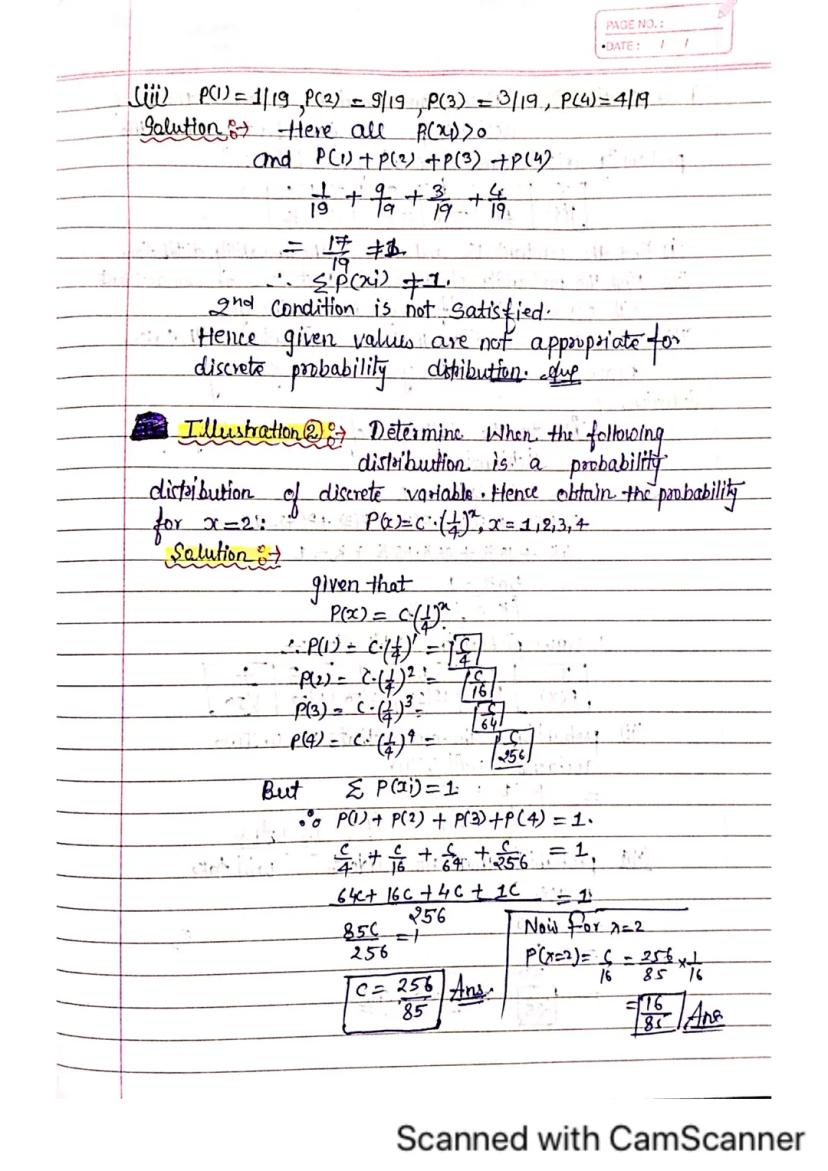 PAGE NO.:
DATE: / /
(iii) P(1) = 1/19, P(2) = 9/19, P(3) = 3/19, P(4) = 4/19
Solution :→ Here all P(xi) > 0
and P(1) + P(2) + P(3) + P(4)
1/19 + 9/19 + 3/19 + 4/19
= 17/19 ≠ 1.
∴ Σ P(xi) ≠ 1.
2nd condition is not satisfied.
Hence given values are not appropriate for
discrete probability distribution.
Illustration ② :→ Determine when the following
distribution is a probability
distribution of discrete variable. Hence obtain the probability
for x = 2: P(x) = C·(1/4)^x, x = 1, 2, 3, 4
Solution :→
given that
P(x) = C·(1/4)^x.
∴ P(1) = C·(1/4)^1 = C/4
P(2) = C·(1/4)^2 = C/16
P(3) = C·(1/4)^3 = C/64
P(4) = C·(1/4)^4 = C/256
But Σ P(xi) = 1.
∴ P(1) + P(2) + P(3) + P(4) = 1.
C/4 + C/16 + C/64 + C/256 = 1.
64C + 16C + 4C + 1C / 256 = 1
85C/256 = 1
C = 256/85 Ans.
Now for x=2
P(x=2) = C/16 = 256/85 × 1/16
= 16/85 Ans
Scanned with CamScanner